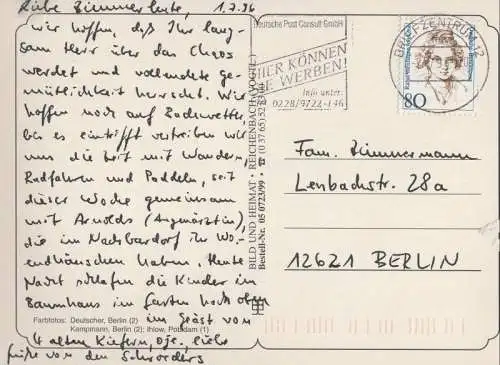 Liebe Zimmerleute, 1.7.96
wir hoffen, daß Ihr lang-
sam Herr über das Chaos
werdet und vollendete Ge-
mütlichkeit herrscht. Wir
hoffen noch auf Badewetter,
bis es eintrifft vertreiben wir
uns die Zeit mit Wandern,
Radfahren und Paddeln, seit
dieser Woche gemeinsam
mit Arnolds (Augenärztin),
die im Nachbardorf ihr Wo-
endhäuschen haben. Heute
Nacht schlafen die Kinder im
Baumhaus im Garten hoch oben
im Geäst von
4 alten Kiefern, oje. Liebe
Grüße von den Schroeders
Farbfotos: Deutscher, Berlin (2)
Kampmann, Berlin (2); Ihlow, Potsdam (1)
BILD UND HEIMAT • REICHENBACH (VOGTL.)
Bestell-Nr. 05 0723/99 •
Deutsche Post Consult GmbH
HIER KÖNNEN
SIE WERBEN!
Info unter:
0228/9724-136
BRIEFZENTRUM 12
80
Fam. Zimmermann
Lenbachstr. 28a
12621 BERLIN